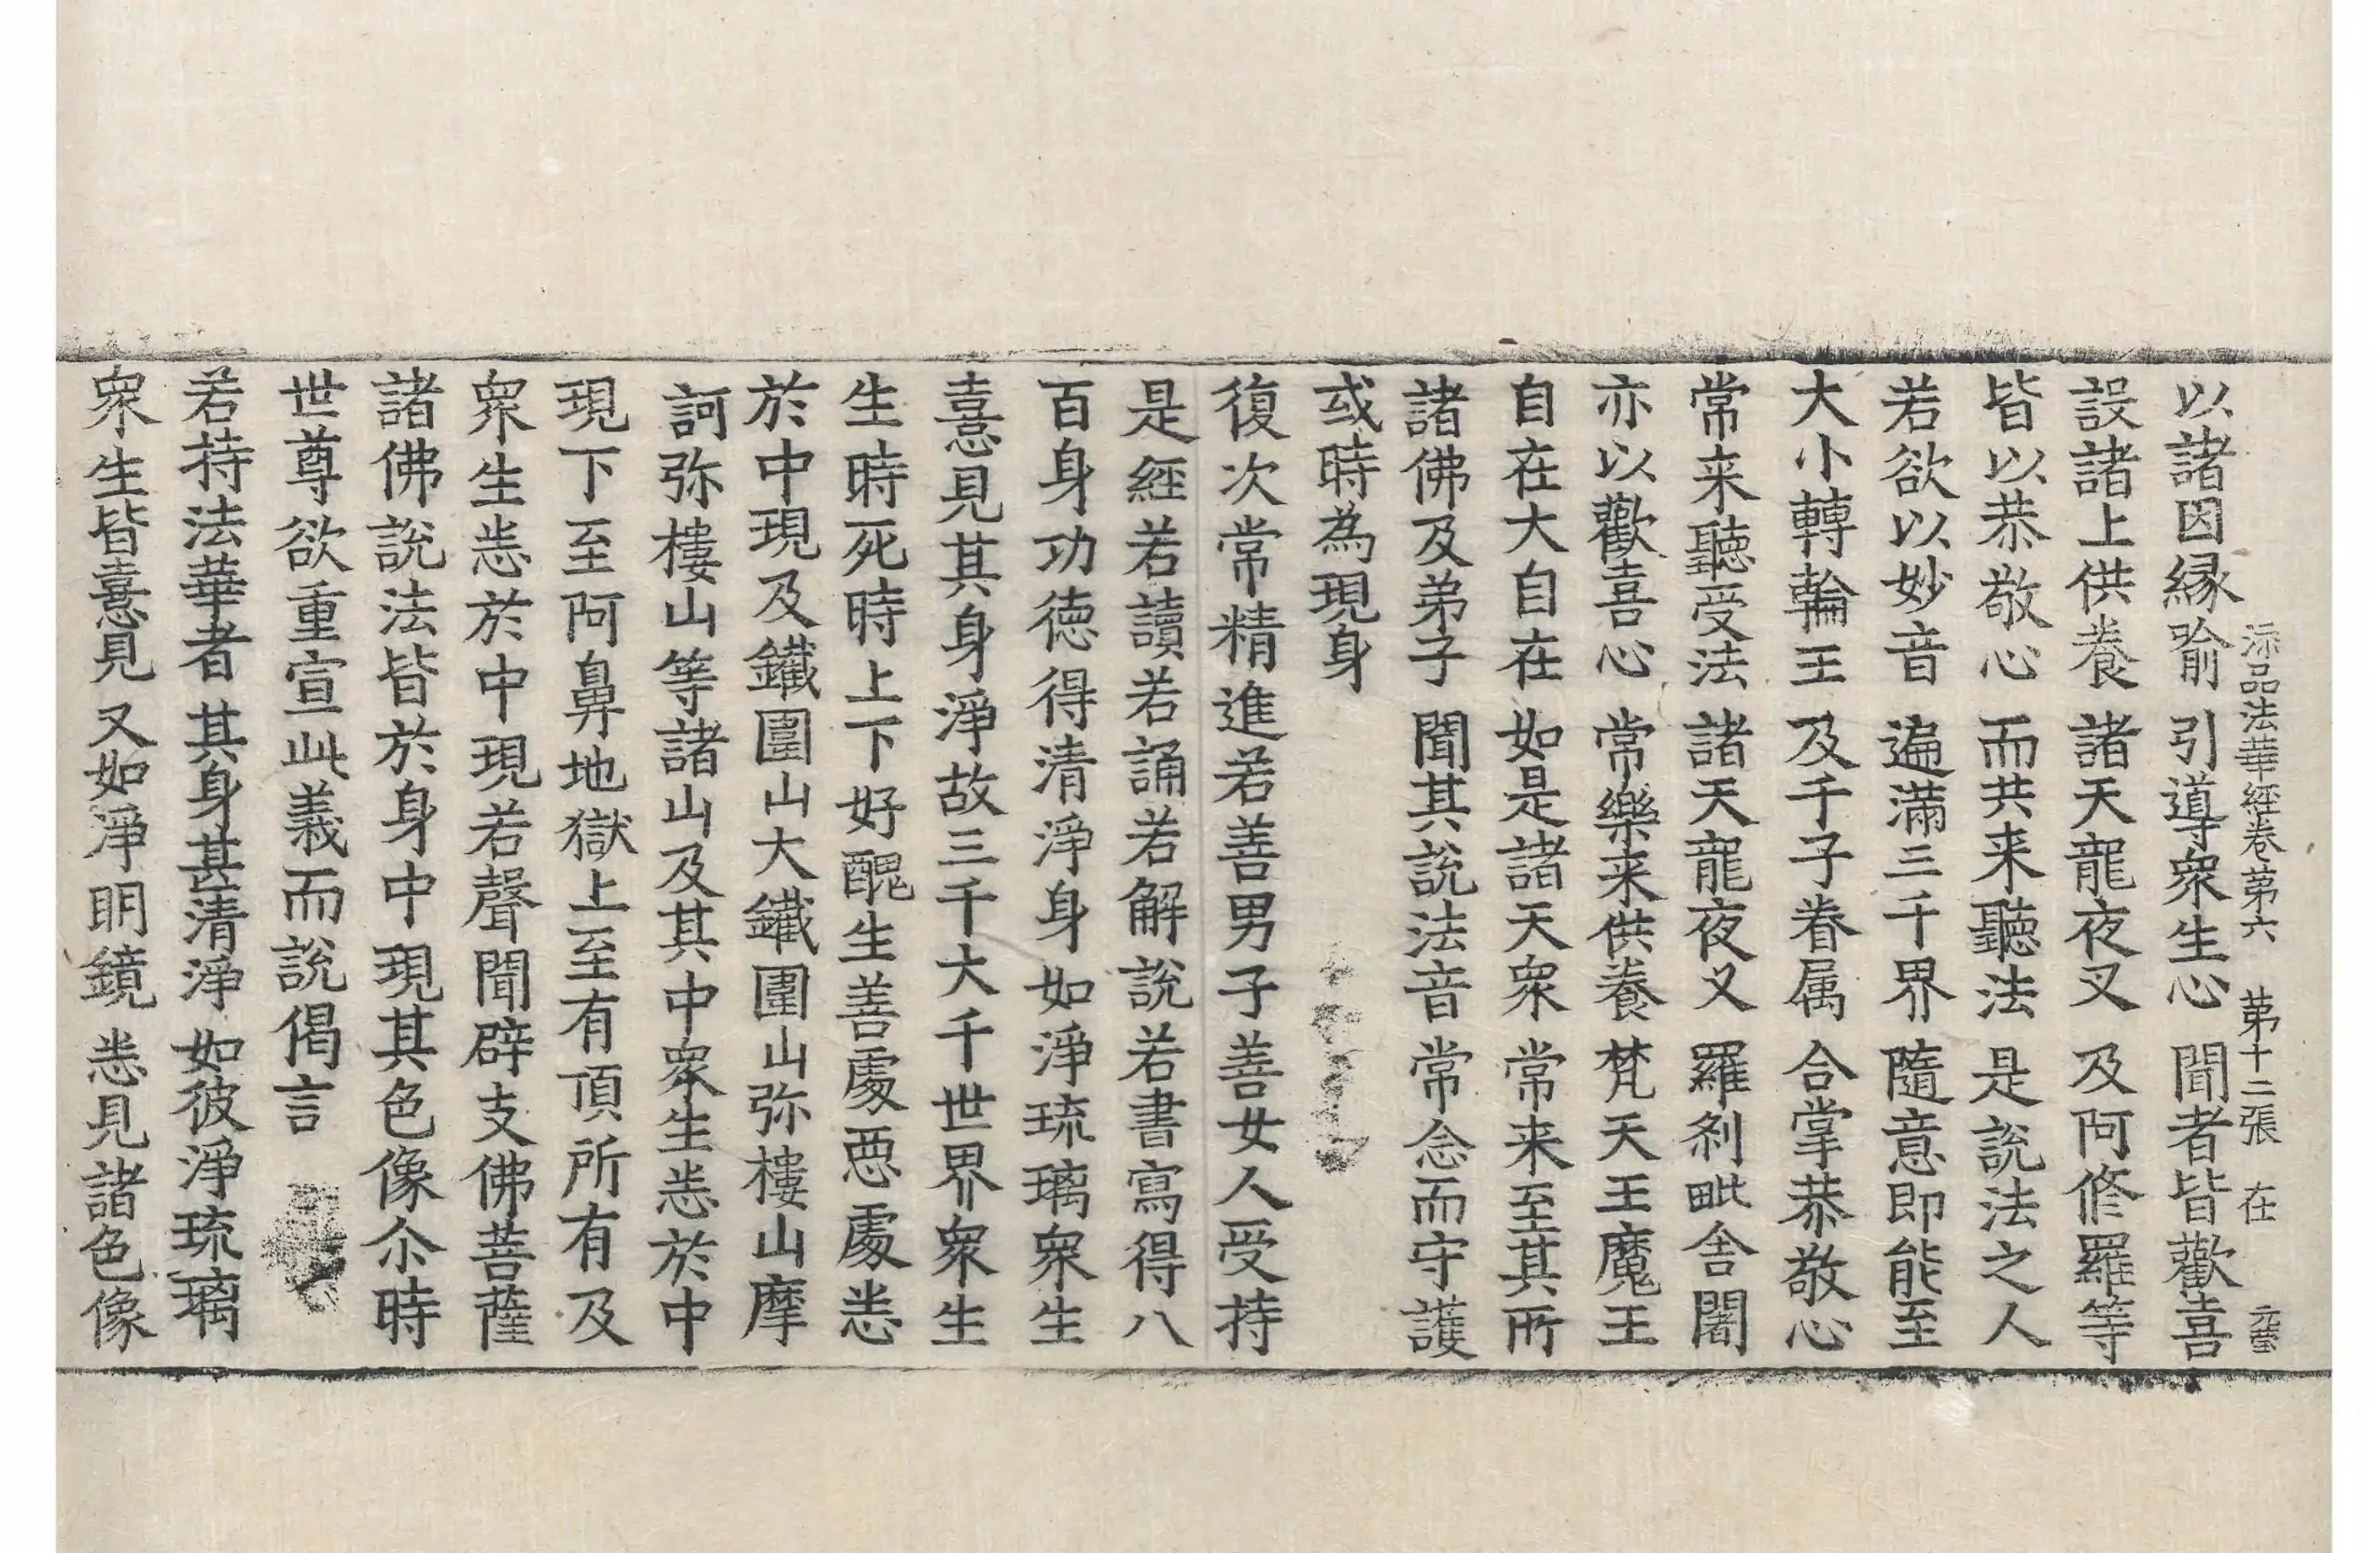 添品法華經卷第六 第十二張 在
以諸因緣喻 引導衆生心 聞者皆歡喜
設諸上供養 諸天龍夜叉 及阿修羅等
皆以恭敬心 而共来聽法 是說法之人
若欲以妙音 遍滿三千界 隨意即能至
大小轉輪王 及千子眷属 合掌恭敬心
常来聽受法 諸天龍夜叉 羅剎毗舍闍
亦以歡喜心 常樂来供養 梵天王魔王
自在大自在 如是諸天衆 常来至其所
諸佛及弟子 聞其說法音 常念而守護
或時為現身
復次常精進若善男子善女人受持
是經若讀若誦若解說若書寫得八
百身功德得清淨身如淨琉璃衆生
憙見其身淨故三千大千世界衆生
生時死時上下好醜生善處惡處悉
於中現及鐵圍山大鐵圍山弥樓山摩
訶弥樓山等諸山及其中衆生悉於中
現下至阿鼻地獄上至有頂所有及
衆生悉於中現若聲聞辟支佛菩薩
諸佛說法皆於身中現其色像尒時
世尊欲重宣此義而說偈言
若持法華者 其身甚清淨 如彼淨琉璃
衆生皆憙見 又如淨明鏡 悉見諸色像